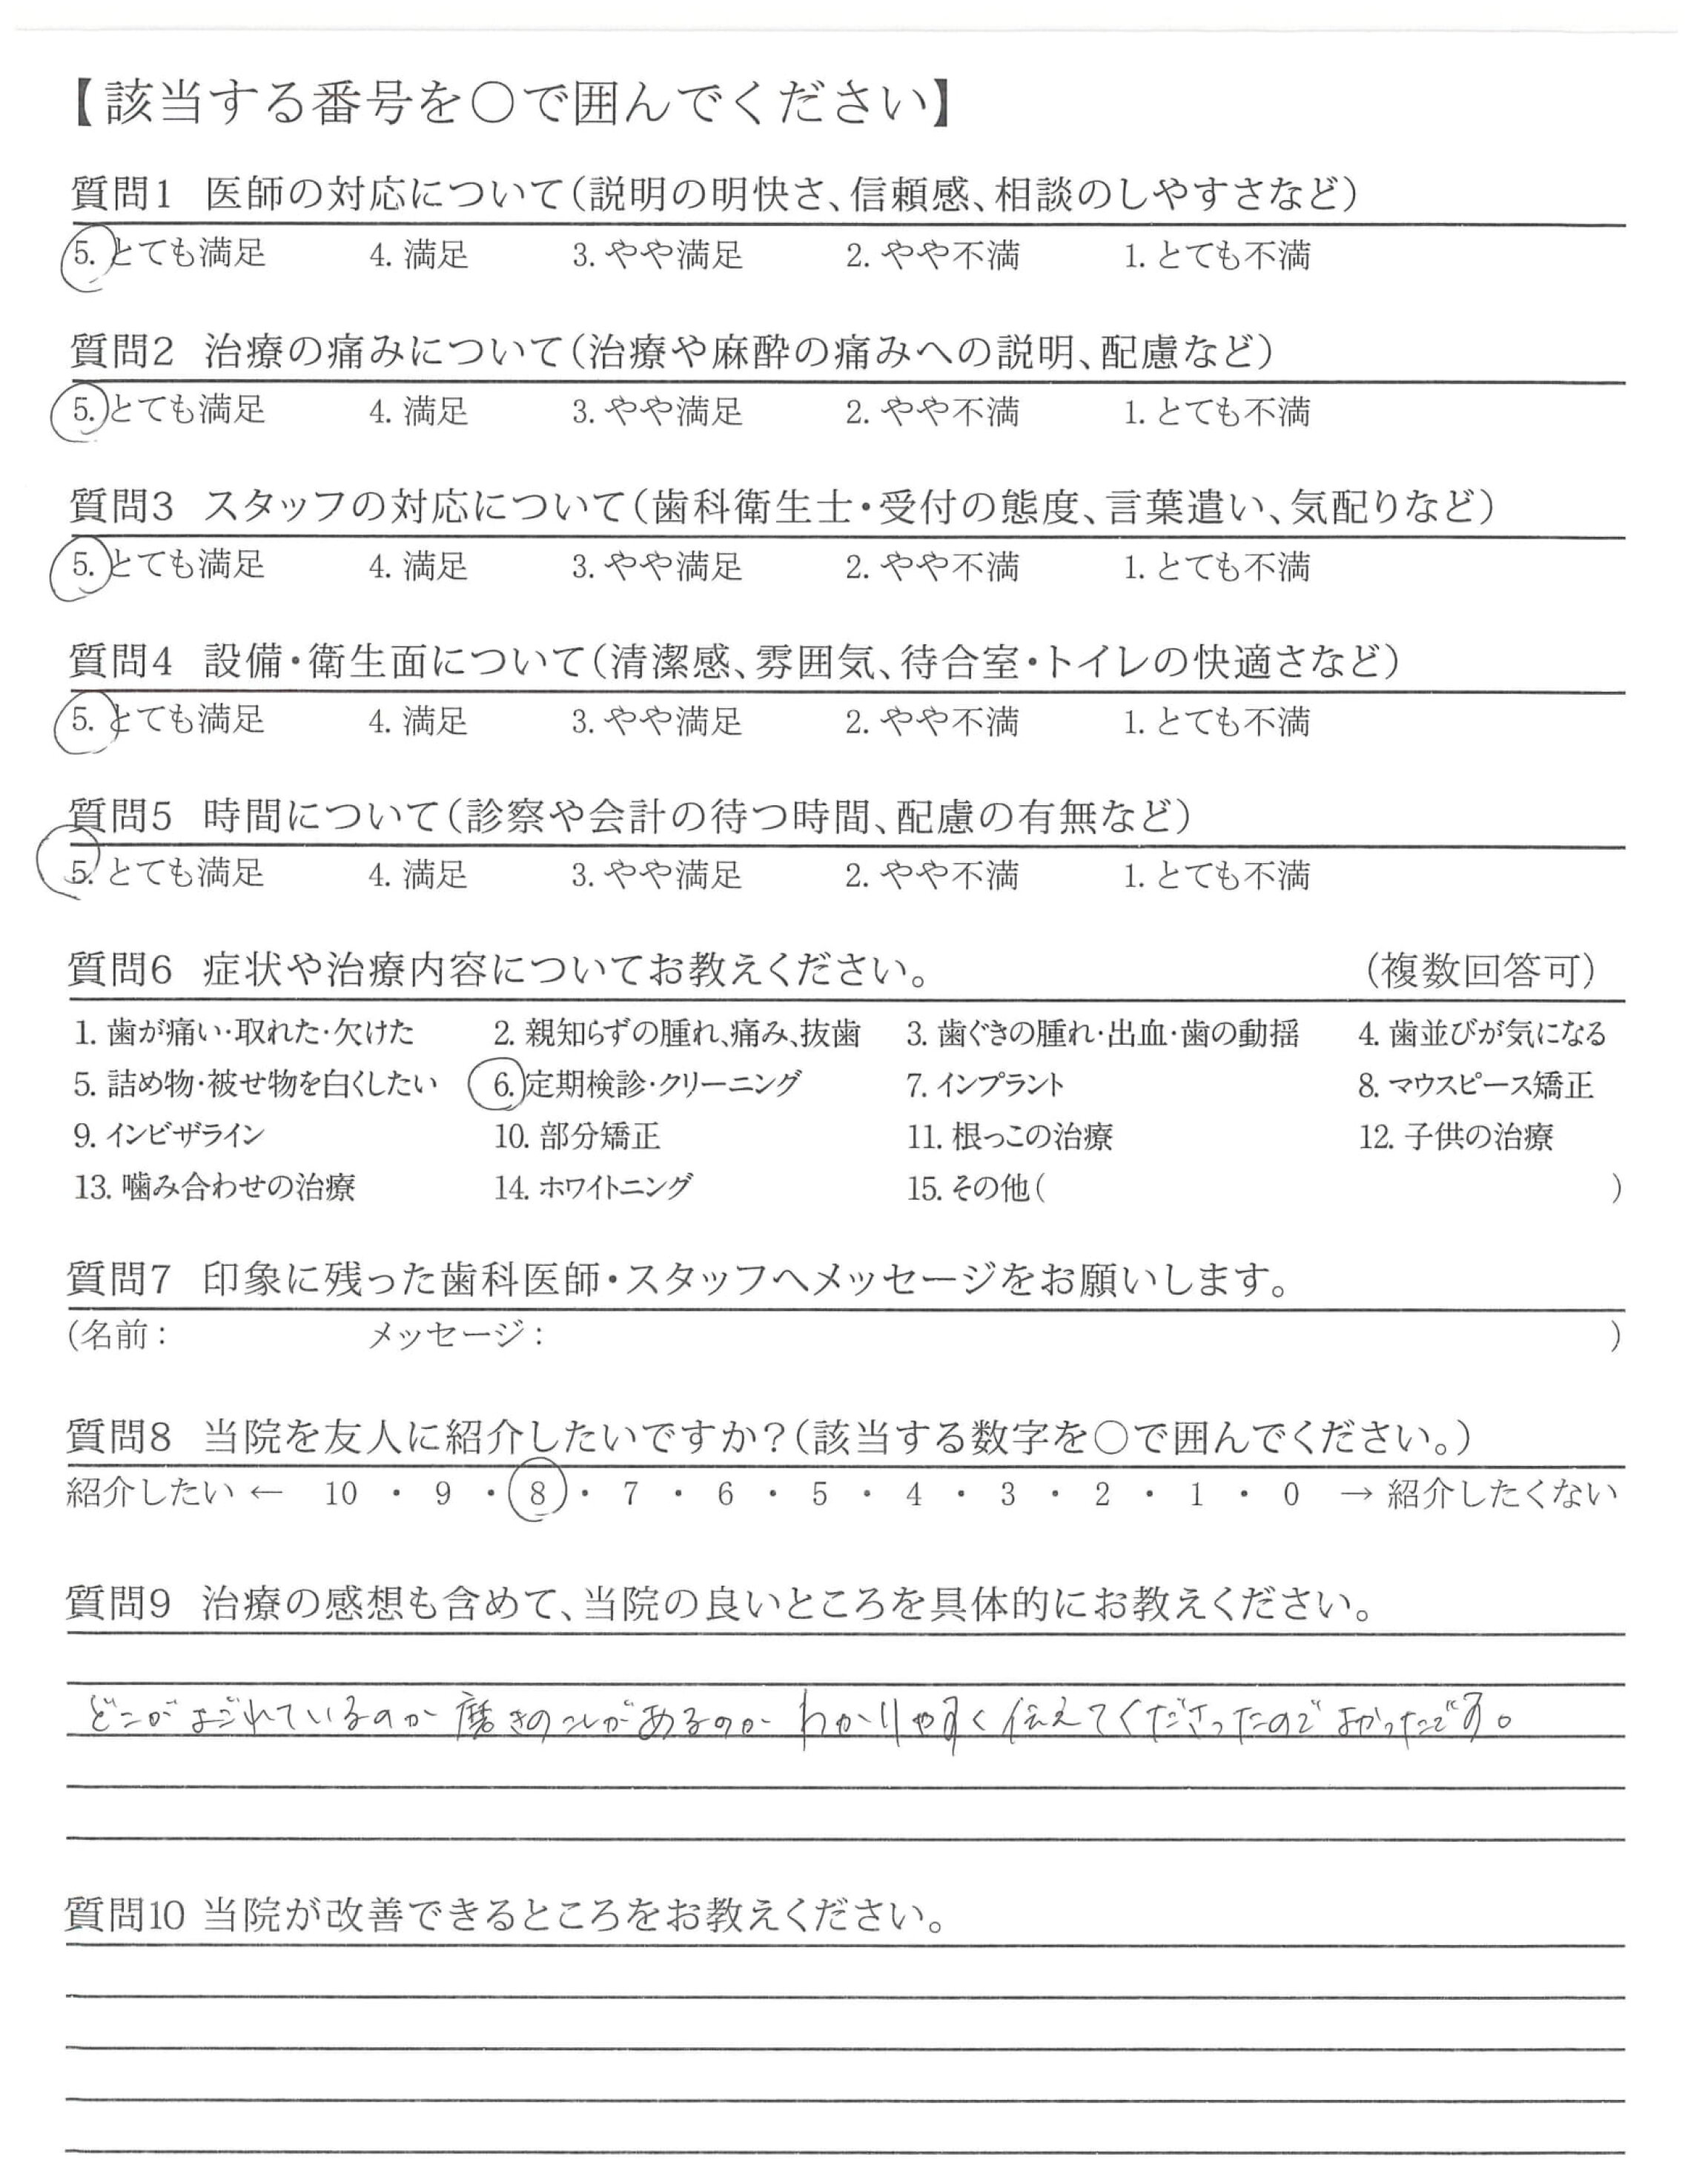 【該当する番号を○で囲んでください】
質問1 医師の対応について(説明の明快さ、信頼感、相談のしやすさなど)
5. とても満足 4. 満足 3. やや満足 2. やや不満 1. とても不満
質問2 治療の痛みについて(治療や麻酔の痛みへの説明、配慮など)
5. とても満足 4. 満足 3. やや満足 2. やや不満 1. とても不満
質問3 スタッフの対応について(歯科衛生士・受付の態度、言葉遣い、気配りなど)
5. とても満足 4. 満足 3. やや満足 2. やや不満 1. とても不満
質問4 設備・衛生面について(清潔感、雰囲気、待合室・トイレの快適さなど)
5. とても満足 4. 満足 3. やや満足 2. やや不満 1. とても不満
質問5 時間について(診察や会計の待つ時間、配慮の有無など)
5. とても満足 4. 満足 3. やや満足 2. やや不満 1. とても不満
質問6 症状や治療内容についてお教えください。 (複数回答可)
1. 歯が痛い・取れた・欠けた 2. 親知らずの腫れ、痛み、抜歯 3. 歯ぐきの腫れ・出血・歯の動揺 4. 歯並びが気になる
5. 詰め物・被せ物を白くしたい 6. 定期検診・クリーニング 7. インプラント 8. マウスピース矯正
9. インビザライン 10. 部分矯正 11. 根っこの治療 12. 子供の治療
13. 噛み合わせの治療 14. ホワイトニング 15. その他( )
質問7 印象に残った歯科医師・スタッフへメッセージをお願いします。
(名前: メッセージ: )
質問8 当院を友人に紹介したいですか?(該当する数字を○で囲んでください。)
紹介したい ← 10 ・ 9 ・ 8 ・ 7 ・ 6 ・ 5 ・ 4 ・ 3 ・ 2 ・ 1 ・ 0 → 紹介したくない
質問9 治療の感想も含めて、当院の良いところを具体的にお教えください。
どこがよごれているのか 磨きのこしがあるのか わかりやすく伝えてくださったので よかったです。
質問10 当院が改善できるところをお教えください。